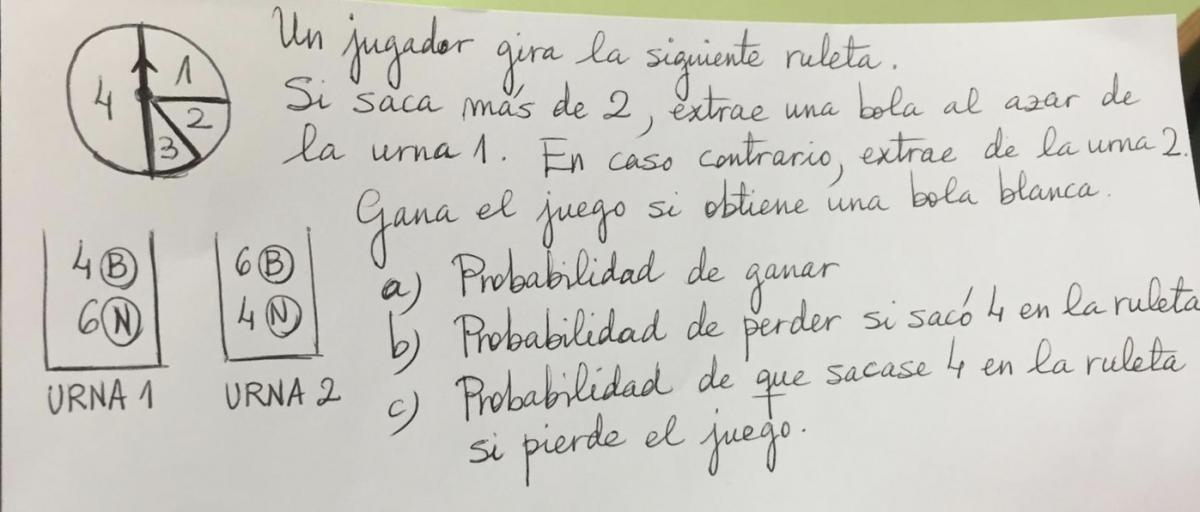 1
4
2
3
Un jugador gira la siguiente ruleta.
Si saca más de 2, extrae una bola al azar de
la urna 1. En caso contrario, extrae de la urna 2.
Gana el juego si obtiene una bola blanca.
a) Probabilidad de ganar
b) Probabilidad de perder si sacó 4 en la ruleta
c) Probabilidad de que sacase 4 en la ruleta
si pierde el juego.
4 B
6 N
URNA 1
6 B
4 N
URNA 2